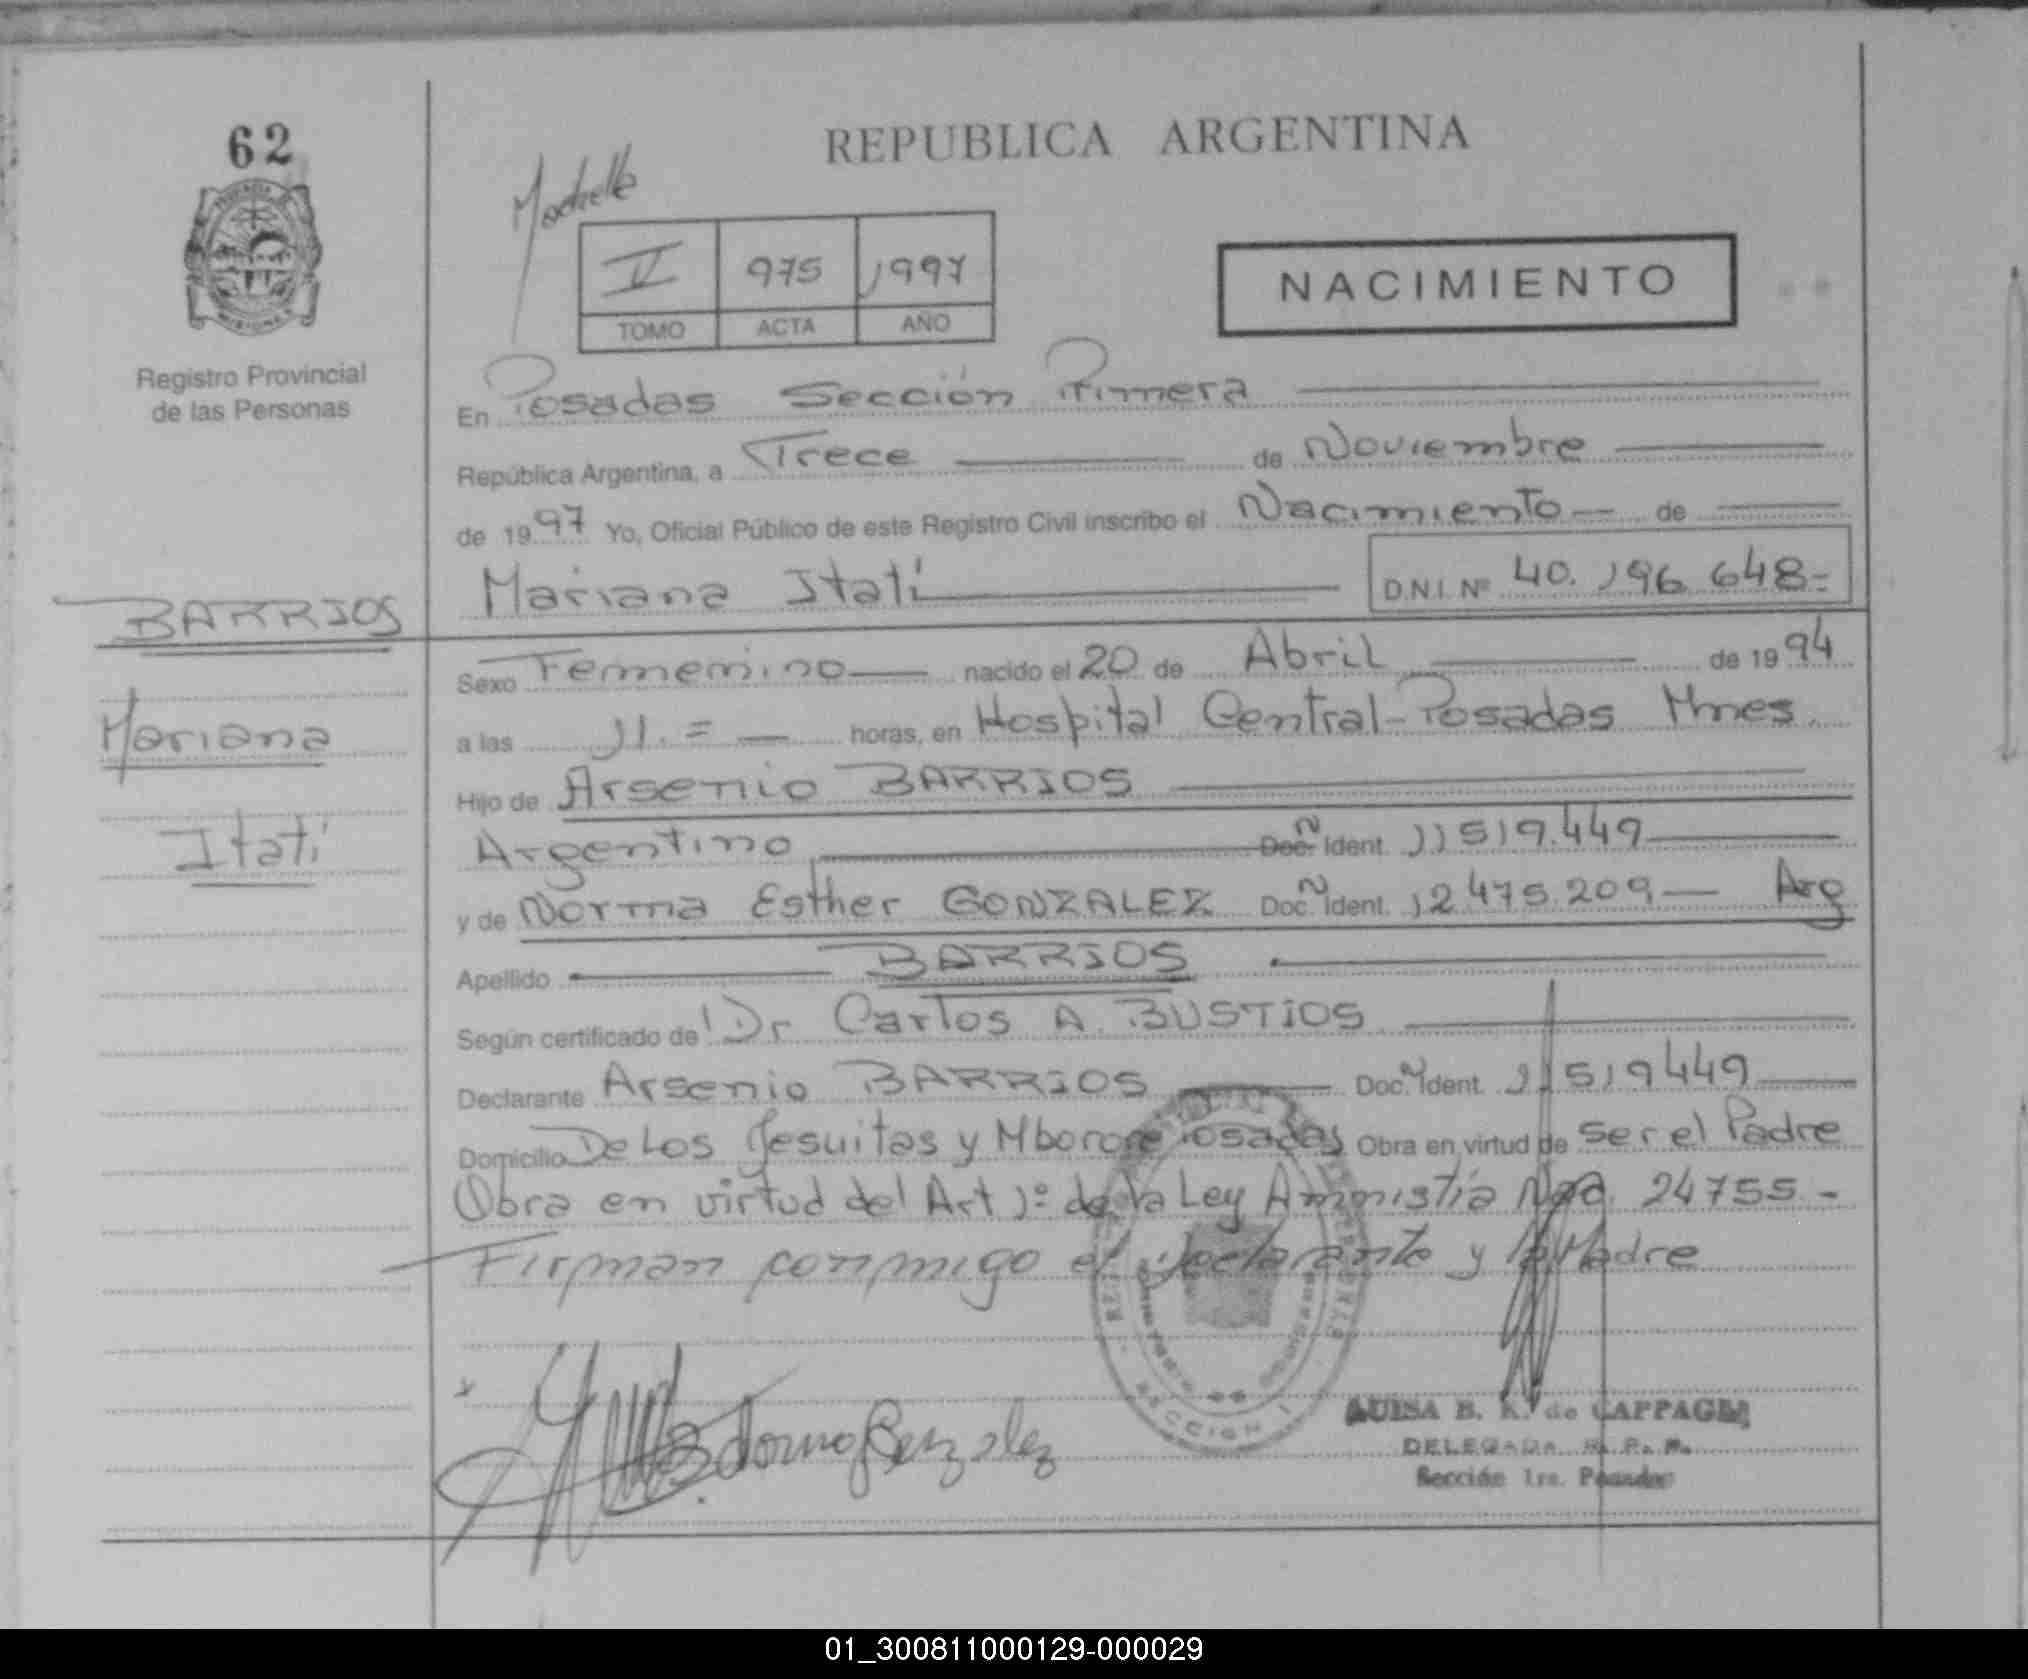 62
REPUBLICA ARGENTINA
V 975 1997
TOMO ACTA AÑO
NACIMIENTO
Registro Provincial
de las Personas
En Posadas Sección Primera
República Argentina, a Trece de Noviembre
de 1997 Yo, Oficial Público de este Registro Civil inscribo el Nacimiento de
Mariana Itatí D.N.I. Nº 40.196.648=
BARRIOS
Mariana
Itatí
Sexo Femenino nacido el 20 de Abril de 1994
a las 11.= horas, en Hospital Central-Posadas Mnes
Hijo de Arsenio BARRIOS
Argentino Doc. Ident. 11519.449
y de Norma Esther GONZALEZ Doc. Ident. 12475.209 Arg
Apellido BARRIOS
Según certificado de Dr Carlos A. BUSTIOS
Declarante Arsenio BARRIOS Doc. Ident. 11519449
Domicilio De Los Jesuitas y Mborore Posadas Obra en virtud de ser el Padre
Obra en virtud del Art 1º de la Ley Amnistía Nº 24755.-
Firman conmigo el declarante y la Madre
Norma Gonzalez
LUISA B. K. de CAPPAGLI
DELEGADA R. P. P.
Sección 1ra. Posadas
SECCION 1
01_300811000129-000029